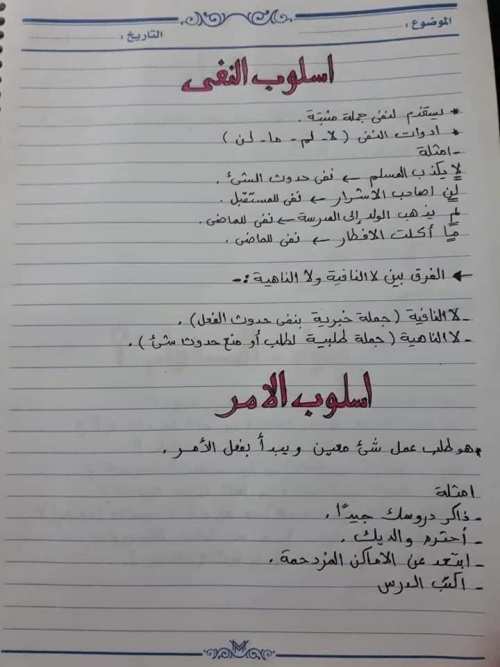 الموضوع :
التاريخ :
اسلوب النفى
* يستخدم لنفى جملة مثبتة .
* ادوات النفى ( لا - لم - ما - لن )
- امثلة
لا يكذب المسلم ← نفى حدوث الشئ .
لن اصاحب الاشرار ← نفى للمستقبل .
لم يذهب الولد إلى المدرسة ← نفى للماضى .
ما أكلت الافطار ← نفى للماضى .
← الفرق بين لا النافية ولا الناهية :-
- لا النافية ( جملة خبرية بنفى حدوث الفعل ) .
- لا الناهية ( جملة طلبية لطلب أو منع حدوث شئ ) .
اسلوب الامر
* هو طلب عمل شئ معين ويبدأ بفعل الأمر .
امثلة
- ذاكر دروسك جيدًا .
- أحترم والديك .
- ابتعد عن الاماكن المزدحمة .
- اكتب الدرس